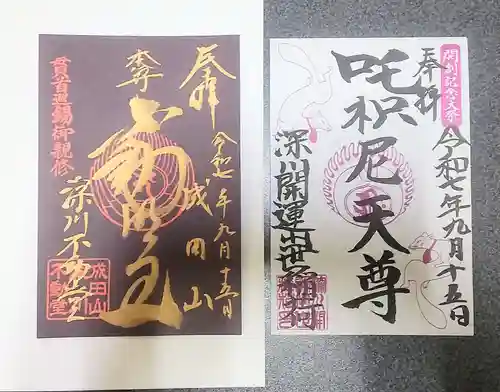 奉拝
令和七年九月十五日
成田山
本尊
不動明王
深川不動堂
貫首巡錫御親修
成田山
不動堂
開創記念大祭
奉拝
令和七年九月十五日
吒枳尼天尊
深川開運出世稲荷